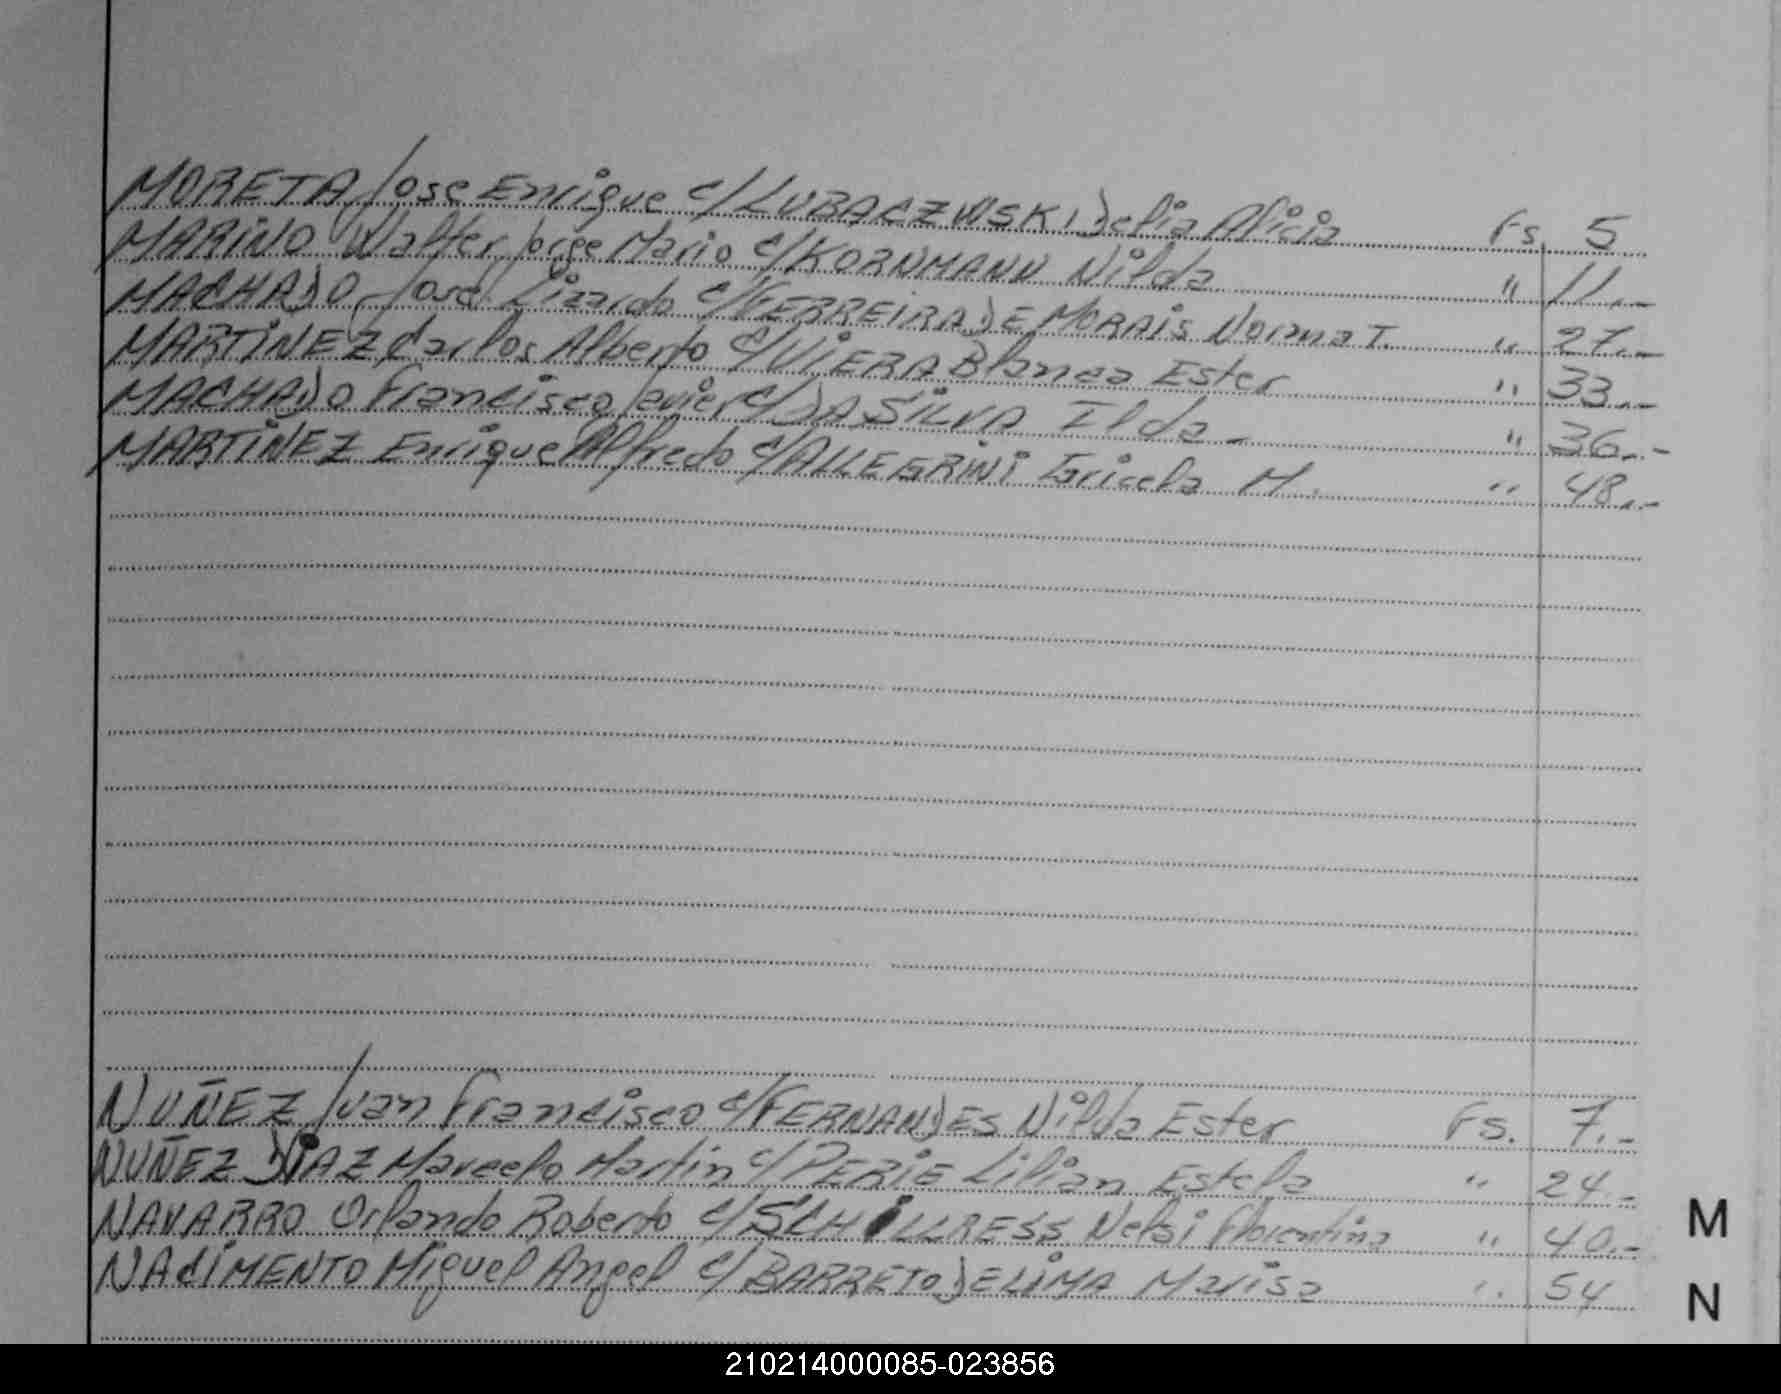 MORETA Jose Enrique c/ LUBACZWSKI Delia Alicia Fs. 5
MARINO Walter Jorge Mario c/ KORNMANN Nilda " 11.-
MACHADO José Lizardo c/ FERREIRA DE MORAIS Norma T. " 27.-
MARTINEZ Carlos Alberto c/ VIERA Blanca Ester " 33.-
MACHADO Francisco Javier c/ DA SILVA Ilda - " 36.-
MARTINEZ Enrique Alfredo c/ ALLEGRINI Gricela M. " 48.-
NUÑEZ Juan Francisco c/ FERNANDES Nilda Ester Fs. 7.-
NUÑEZ DIAZ Marcelo Martin c/ PERIE Lilian Estela " 24.-
NAVARRO Orlando Roberto c/ SCHILLRESS Nelsi Florentina " 40.-
NACIMENTO Miguel Angel c/ BARRETO DE LIMA Marisa " 54
M
N
210214000085-023856